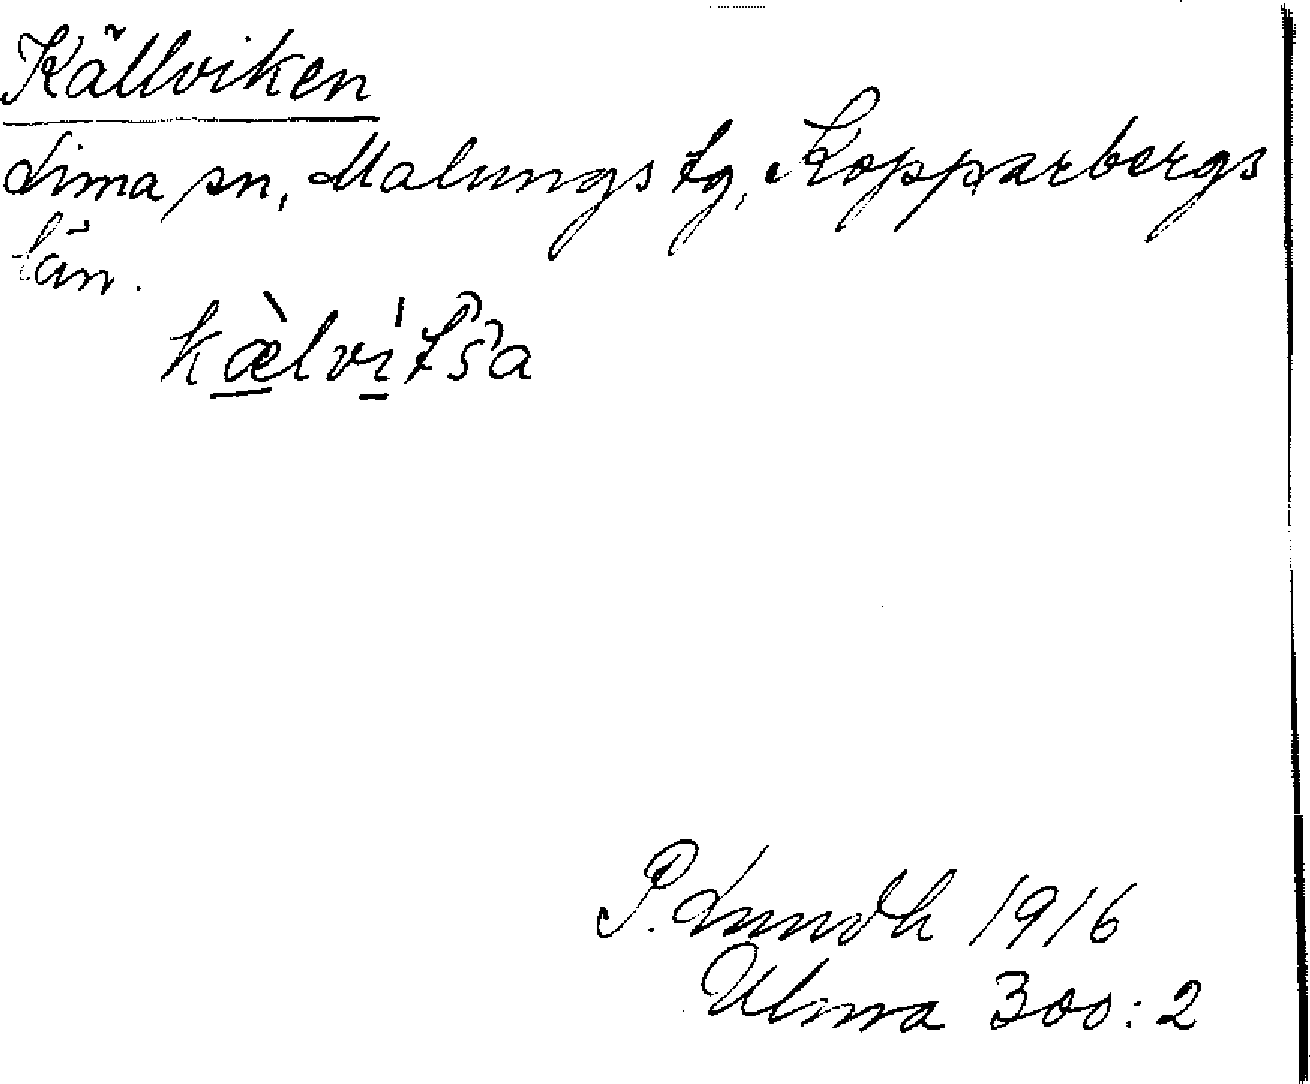 Källviken
Lima sn, Malungs tg, Kopparbergs
län.
kæ̀lvi̍tša
P. Lundh 1916
Ulma 300:2